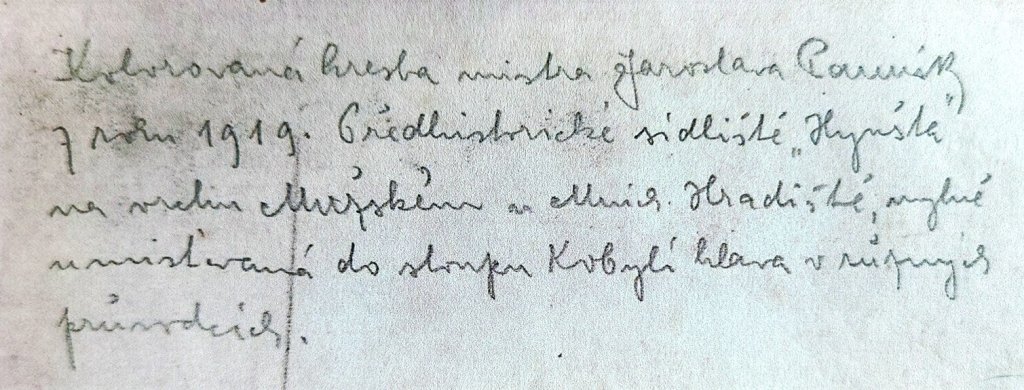 Kolorovaná kresba mistra Jaroslava Panušk
z roku 1919. Předhistorické sídliště „Hynšta"
na vrchu Mužském u Mnich. Hradiště, mylně
umisťovaná do sloupu Kobylí hlava v různých
průvodcích.